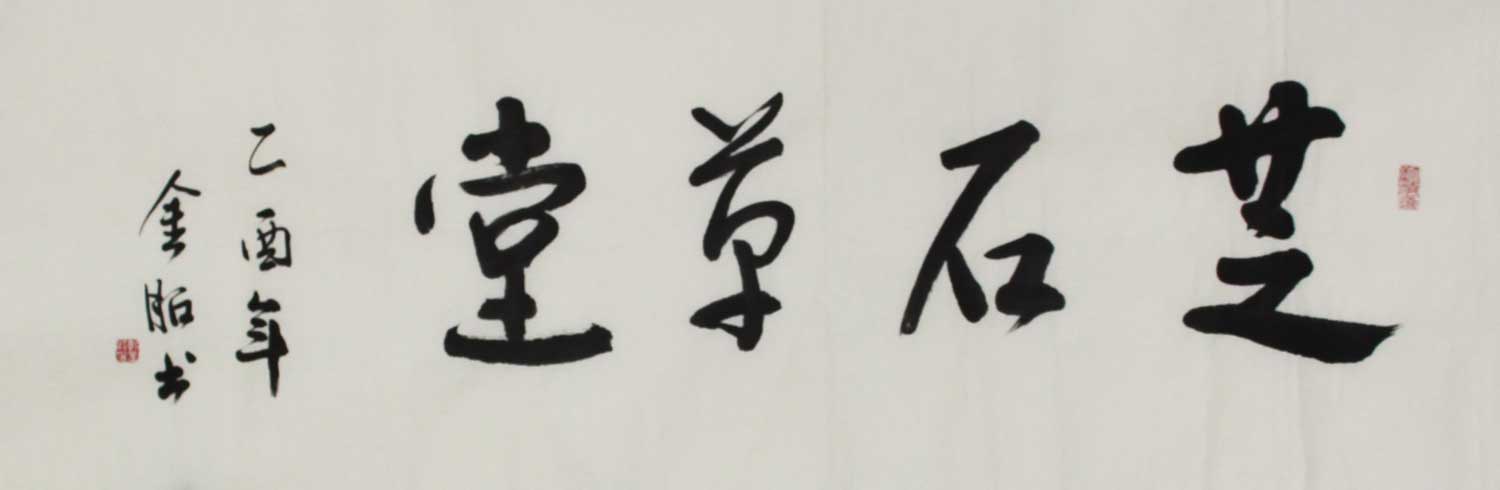 芝石草堂
乙酉年
金膺书